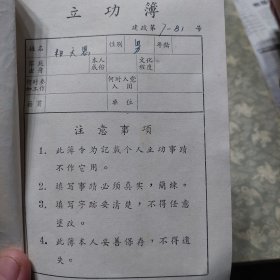 立功簿
建政第 7-81 号
姓名 性别 男 年龄
家庭出身 本人成份 文化程度
何时参加工作 何时入党入团
籍贯 单位
注意事项
1. 此簿专为记载个人立功事迹
不作它用。
2. 填写事迹必须真实，简练。
3. 填写字迹要清楚，不得任意
塗改。
4. 此簿本人妥善保存，不得遗
失。